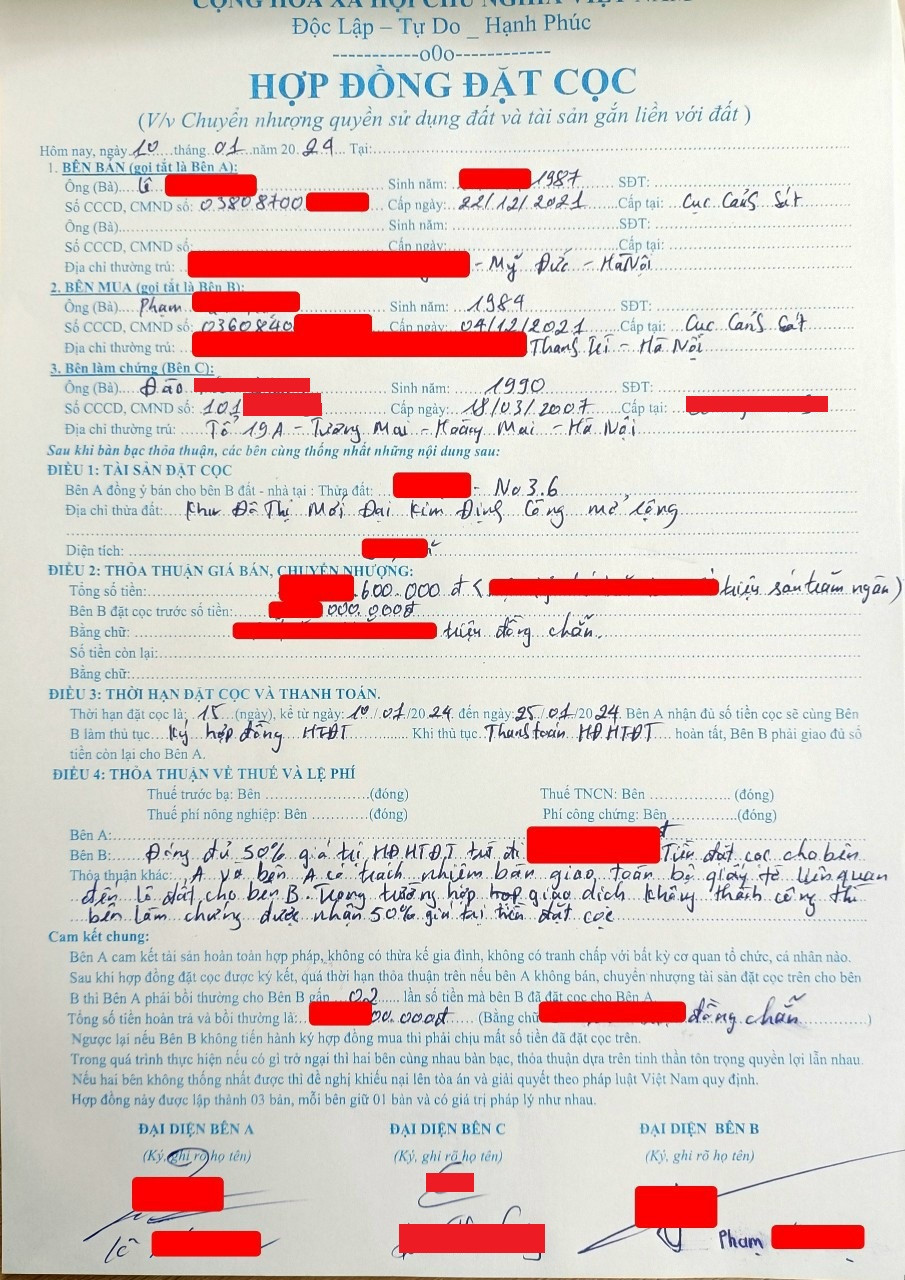 CỘNG HÒA XÃ HỘI CHỦ NGHĨA VIỆT NAM
Độc Lập – Tự Do _ Hạnh Phúc
------------o0o------------
HỢP ĐỒNG ĐẶT CỌC
(V/v Chuyển nhượng quyền sử dụng đất và tài sản gắn liền với đất )
Hôm nay, ngày 10 tháng 01 năm 2024 Tại:
1. BÊN BÁN (gọi tắt là Bên A):
Ông (Bà) Lê Sinh năm: 1987 SĐT:
Số CCCD, CMND số: 03808700 Cấp ngày: 22/12/2021 Cấp tại: Cục Cảnh Sát
Ông (Bà) Sinh năm: SĐT:
Số CCCD, CMND số: Cấp ngày: Cấp tại:
Địa chỉ thường trú: - Mỹ Đức - Hà Nội
2. BÊN MUA (gọi tắt là Bên B):
Ông (Bà) Phạm Sinh năm: 1984 SĐT:
Số CCCD, CMND số: 0360840 Cấp ngày: 04/12/2021 Cấp tại: Cục Cảnh Sát
Địa chỉ thường trú: Thanh Trì - Hà Nội
3. Bên làm chứng (Bên C):
Ông (Bà) Đào Sinh năm: 1990 SĐT:
Số CCCD, CMND số: 101 Cấp ngày: 18/03/2007 Cấp tại:
Địa chỉ thường trú: Tổ 19A - Tương Mai - Hoàng Mai - Hà Nội
Sau khi bàn bạc thỏa thuận, các bên cùng thống nhất những nội dung sau:
ĐIỀU 1: TÀI SẢN ĐẶT CỌC
Bên A đồng ý bán cho bên B đất - nhà tại : Thửa đất: - No 3.6
Địa chỉ thửa đất: Khu Đô Thị Mới Đại Kim Định Công mở rộng
Diện tích:
ĐIỀU 2: THỎA THUẬN GIÁ BÁN, CHUYỂN NHƯỢNG:
Tổng số tiền: .600.000 đ ( triệu sáu trăm ngàn)
Bên B đặt cọc trước số tiền: 000.000đ
Bằng chữ: triệu đồng chẵn.
Số tiền còn lại:
Bằng chữ:
ĐIỀU 3: THỜI HẠN ĐẶT CỌC VÀ THANH TOÁN.
Thời hạn đặt cọc là: 15 (ngày), kể từ ngày: 10/01/2024 đến ngày: 25/01/2024. Bên A nhận đủ số tiền cọc sẽ cùng Bên
B làm thủ tục Ký hợp đồng HTĐT Khi thủ tục Thanh toán HĐHTĐT hoàn tất, Bên B phải giao đủ số
tiền còn lại cho Bên A.
ĐIỀU 4: THỎA THUẬN VỀ THUẾ VÀ LỆ PHÍ
Thuế trước bạ: Bên ....................(đóng) Thuế TNCN: Bên .................... (đóng)
Thuế phí nông nghiệp: Bên ....................(đóng) Phí công chứng: Bên ....................(đóng)
Bên A: đ
Bên B: Đóng đủ 50% giá trị HĐHTĐT trừ đi Tiền đặt cọc cho bên
Thỏa thuận khác: A và bên A có trách nhiệm bàn giao toàn bộ giấy tờ liên quan
đến lô đất cho bên B. Trong trường hợp hợp giao dịch không thành công thì
bên làm chứng được nhận 50% giá trị tiền đặt cọc
Cam kết chung:
Bên A cam kết tài sản hoàn toàn hợp pháp, không có thừa kế gia đình, không có tranh chấp với bất kỳ cơ quan tổ chức, cá nhân nào.
Sau khi hợp đồng đặt cọc được ký kết, quá thời hạn thỏa thuận trên nếu bên A không bán, chuyển nhượng tài sản đặt cọc trên cho bên
B thì Bên A phải bồi thường cho Bên B gấp 02 lần số tiền mà bên B đã đặt cọc cho Bên A
Tổng số tiền hoàn trả và bồi thường là: 00.000đ (Bằng chữ đồng chẵn )
Ngược lại nếu Bên B không tiến hành ký hợp đồng mua thì phải chịu mất số tiền đã đặt cọc trên.
Trong quá trình thực hiện nếu có gì trở ngại thì hai bên cùng nhau bàn bạc, thỏa thuận dựa trên tinh thần tôn trọng quyền lợi lẫn nhau.
Nếu hai bên không thống nhất được thì đề nghị khiếu nại lên tòa án và giải quyết theo pháp luật Việt Nam quy định.
Hợp đồng này được lập thành 03 bản, mỗi bên giữ 01 bản và có giá trị pháp lý như nhau.
ĐẠI DIỆN BÊN A ĐẠI DIỆN BÊN C ĐẠI DIỆN BÊN B
(Ký, ghi rõ họ tên) (Ký, ghi rõ họ tên) (Ký, ghi rõ họ tên)
Lê Phạm